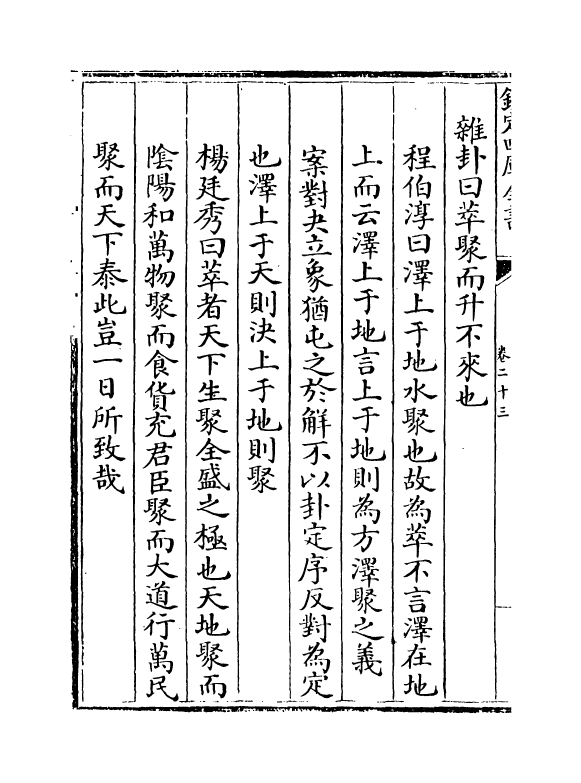 欽定四庫全書
卷二十三
雜卦曰萃聚而升不來也
程伯淳曰澤上于地水聚也故為萃不言澤在地
上而云澤上于地言上于地則為方澤聚之義
案對夬立象猶屯之於解不以卦定序反對為定
也澤上于天則決上于地則聚
楊廷秀曰萃者天下生聚全盛之極也天地聚而
陰陽和萬物聚而食貨充君臣聚而大道行萬民
聚而天下泰此豈一日所致哉